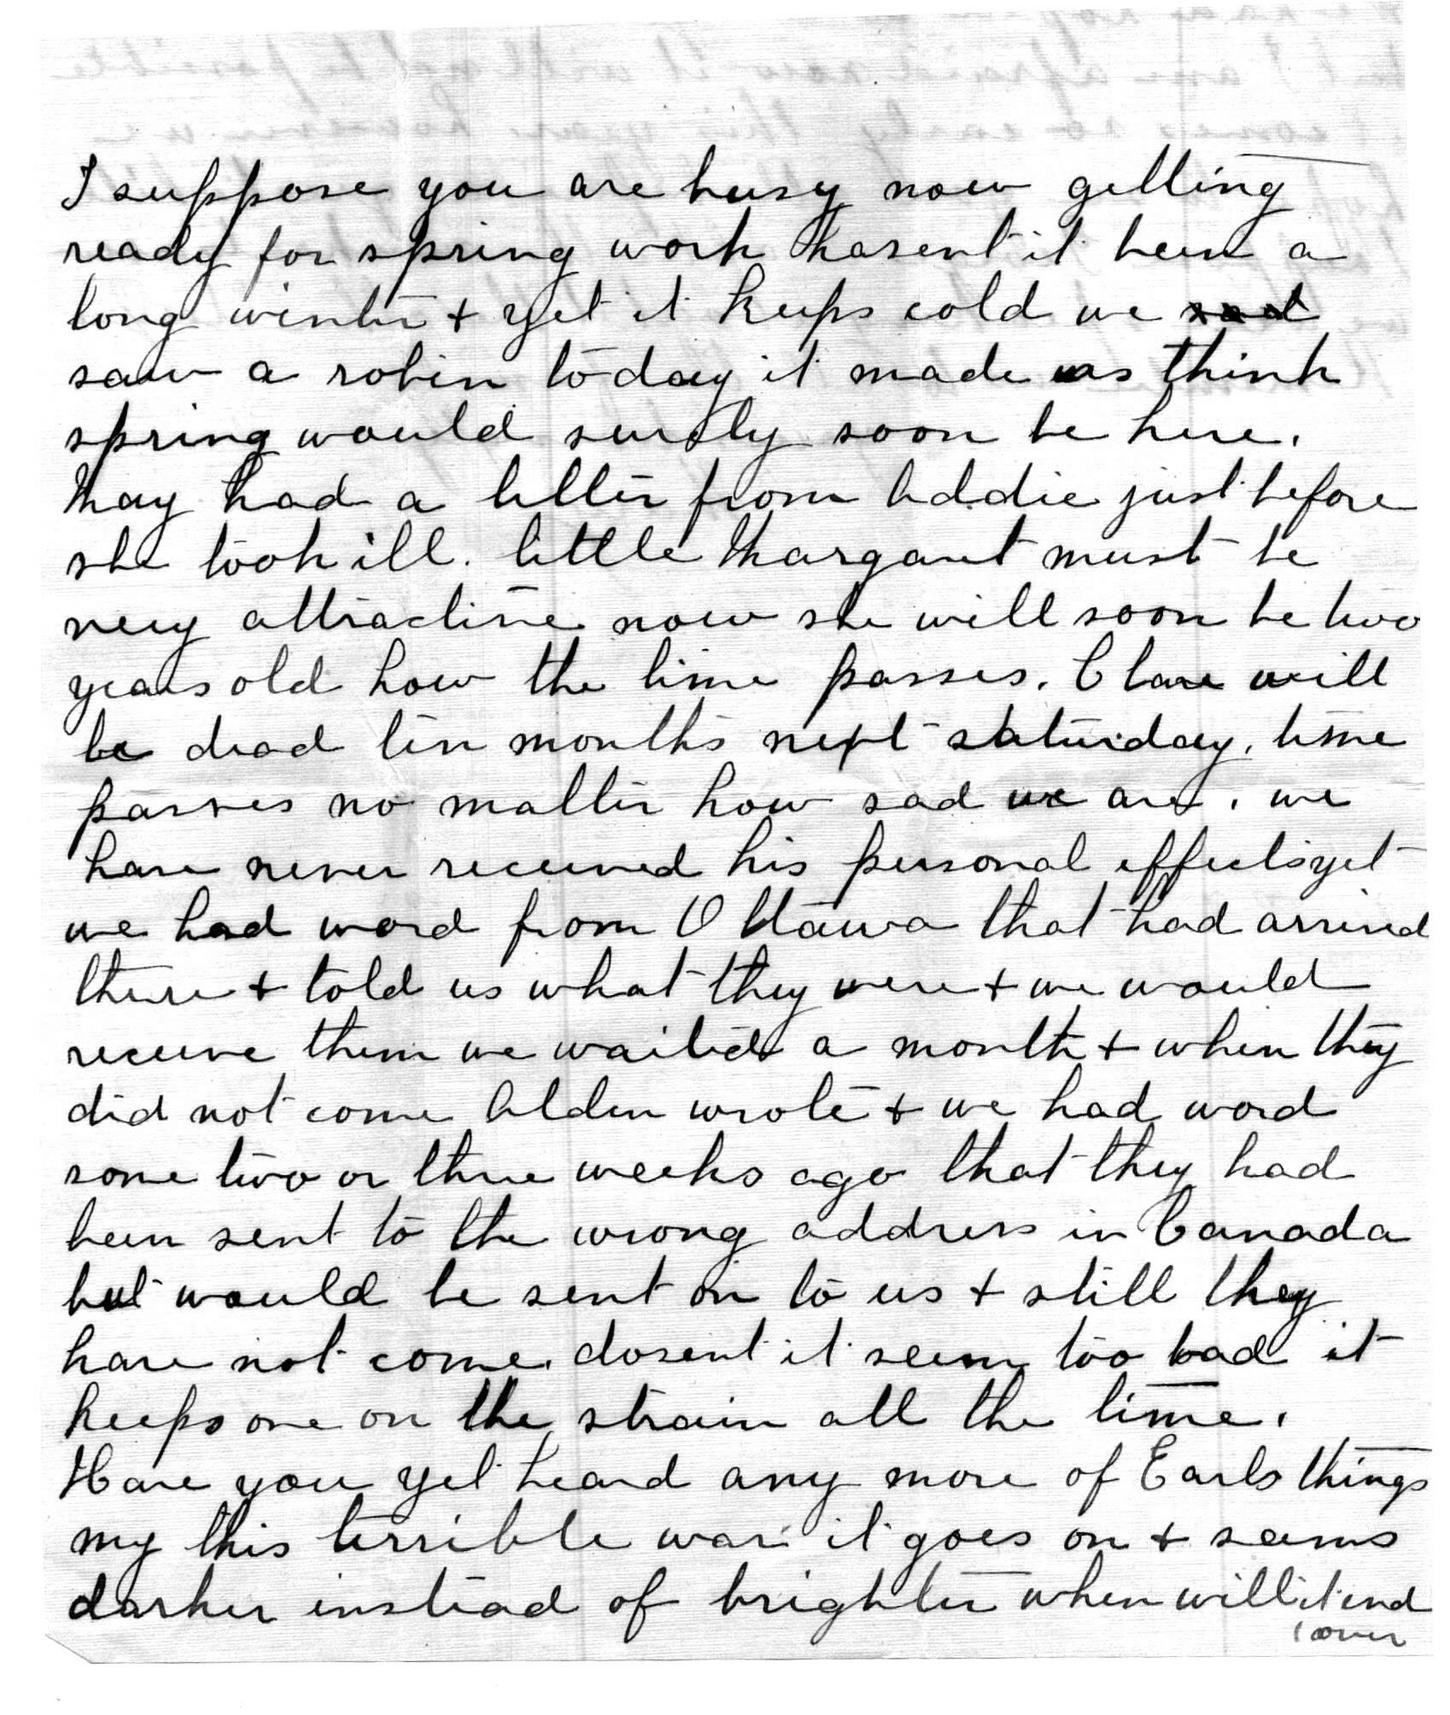 I suppose you are busy now getting
ready for spring work hasent it been a
long winter + yet it keeps cold we
saw a robin today it made us think
spring would surely soon be here.
May had a letter from Addie just before
she took ill. little Margaret must be
very attractive now she will soon be two
years old how the time passes. Clare will
be dead ten months next saturday. time
passes no matter how sad we are. we
have never received his personal effects yet
we had word from Ottawa that had arrived
there + told us what they were + we would
receive them we waited a month + when they
did not come Alden wrote + we had word
some two or three weeks ago that they had
been sent to the wrong address in Canada
but would be sent on to us + still they
have not come. dosent it seem too bad it
keeps one on the strain all the time.
Have you yet heard any more of Earls things
my this terrible war it goes on + seems
darker instead of brighter when will it end
(over